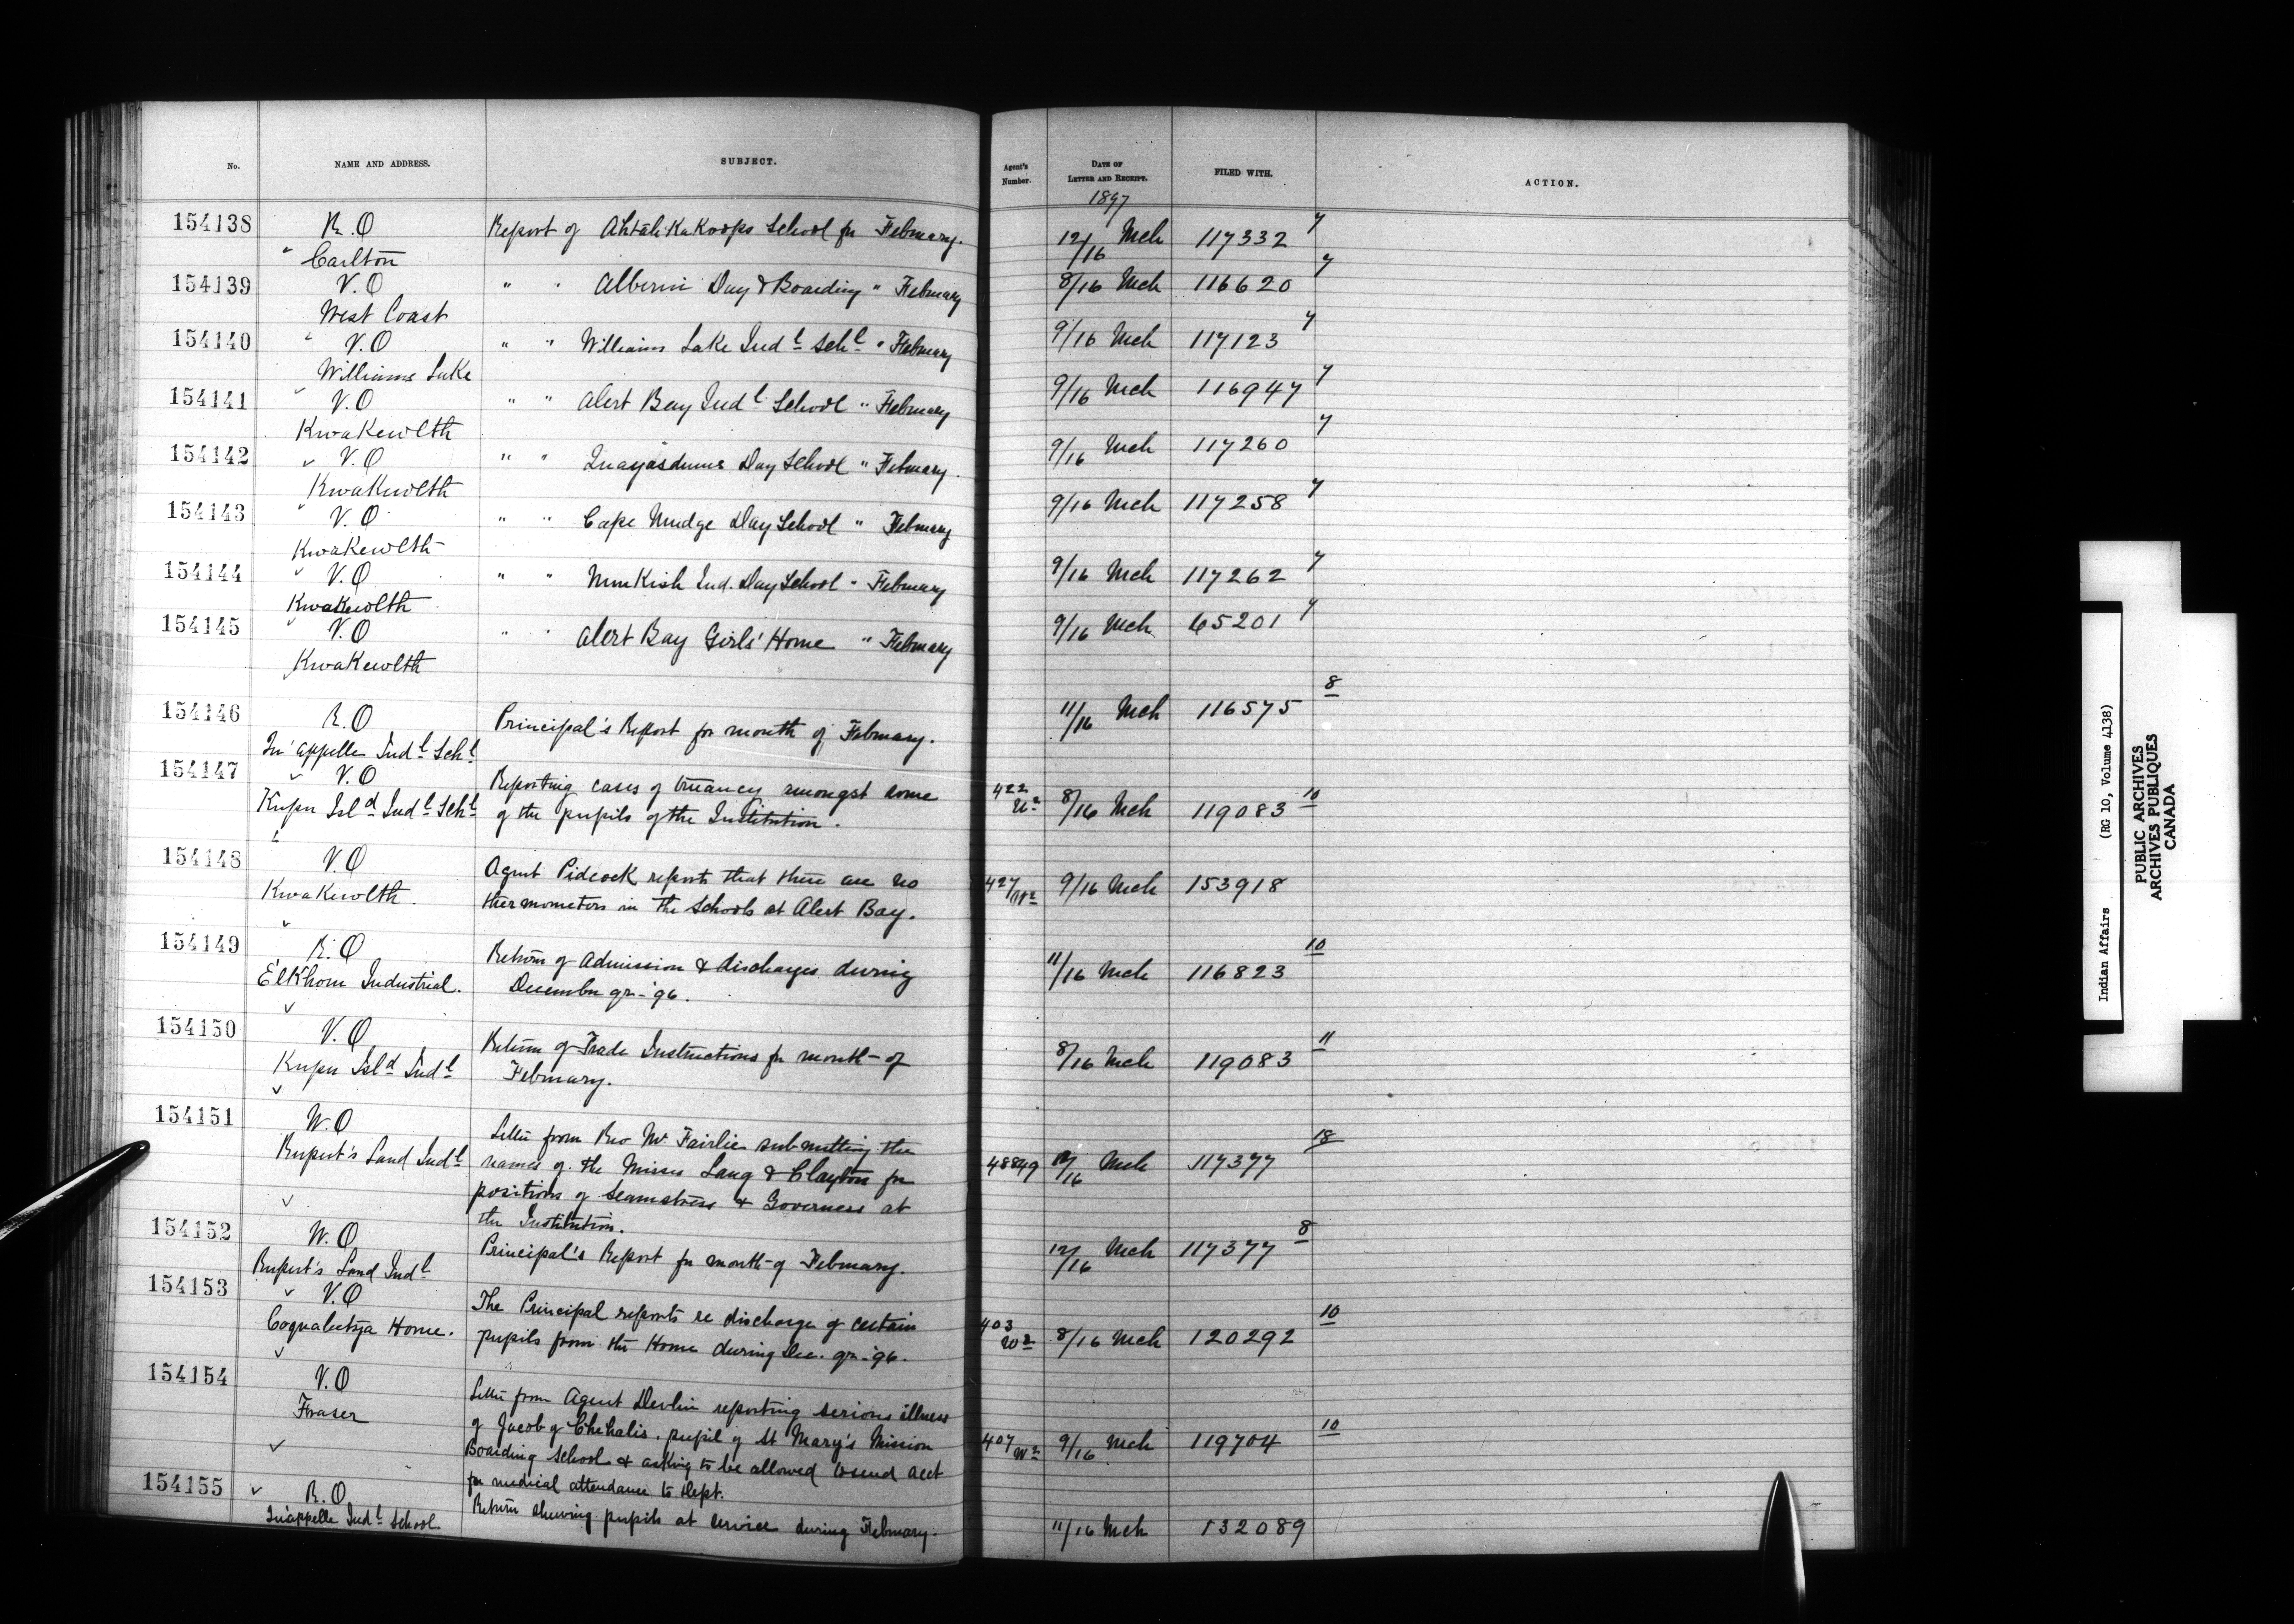 No. NAME AND ADDRESS. SUBJECT. Agent's Number. DATE OF LETTER AND RECEIPT. FILED WITH. ACTION.
1897
154138 R.O Report of Ahtah-Ka Koops School for February. 12/16 Mch 117332 7
" Carlton
154139 V.O " " Alberni Day & Boarding " February 8/16 Mch 116620 7
West Coast
154140 " V.O " " Williams Lake Indl Schl " February 9/16 Mch 117123 7
Williams Lake
154141 V.O " " Alert Bay Indl School " February 9/16 Mch 116947 7
Kwakewlth
154142 V.O " " Quayasdums Day School " February. 9/16 Mch 117260 7
Kwakewlth
154143 V.O " " Cape Mudge Day School " February 9/16 Mch 117258 7
Kwakewlth
154144 V.O " " Nimkish Ind. Day School " February 9/16 Mch 117262 7
Kwakewlth
154145 V.O " " Alert Bay Girls' Home " February 9/16 Mch 65201 7
Kwakewlth
154146 R.O Principal's Report for month of February. 11/16 Mch 116575 8
Qu'appelle Indl Schl
154147 V.O Reporting cases of truancy amongst some 422 8/16 Mch 119083 10
Kuper Isld Indl Schl of the pupils of the Institution.
154148 V.O Agent Pidcock reports that there are no 427 9/16 Mch 153918
Kwakewlth. thermometers in the Schools at Alert Bay.
154149 R.O Return of Admission & discharges during 11/16 Mch 116823 10
Elkhorn Industrial. December qr-'96.
154150 V.O Return of Trade Instructions for month of 8/16 Mch 119083 11
Kuper Isld Indl February.
154151 W.O Letter from Rev Mr Fairlie submitting the 18
Rupert's Land Indl names of the Misses Lang & Clayton for 48849 12/16 Mch 117377
positions of Seamstress & Governess at
the Institution.
154152 W.O Principal's Report for month of February. 12/16 Mch 117377 8
Rupert's Land Indl
154153 V.O The Principal reports re discharge of certain 10
Coqualeetza Home. pupils from the Home during Dec. qr-'96. 403 W2 8/16 Mch 120292
154154 V.O Letter from Agent Devlin reporting serious illness
Fraser of Jacob of Chehalis, pupil of St Mary's Mission 407 W2 9/16 Mch 119704 10
Boarding School & asking to be allowed to send acct
for medical attendance to Dept.
154155 R.O Return shewing pupils at service during February. 11/16 Mch 132089
Qu'appelle Indl School
Indian Affairs (RG 10, Volume 4138)
PUBLIC ARCHIVES
ARCHIVES PUBLIQUES
CANADA